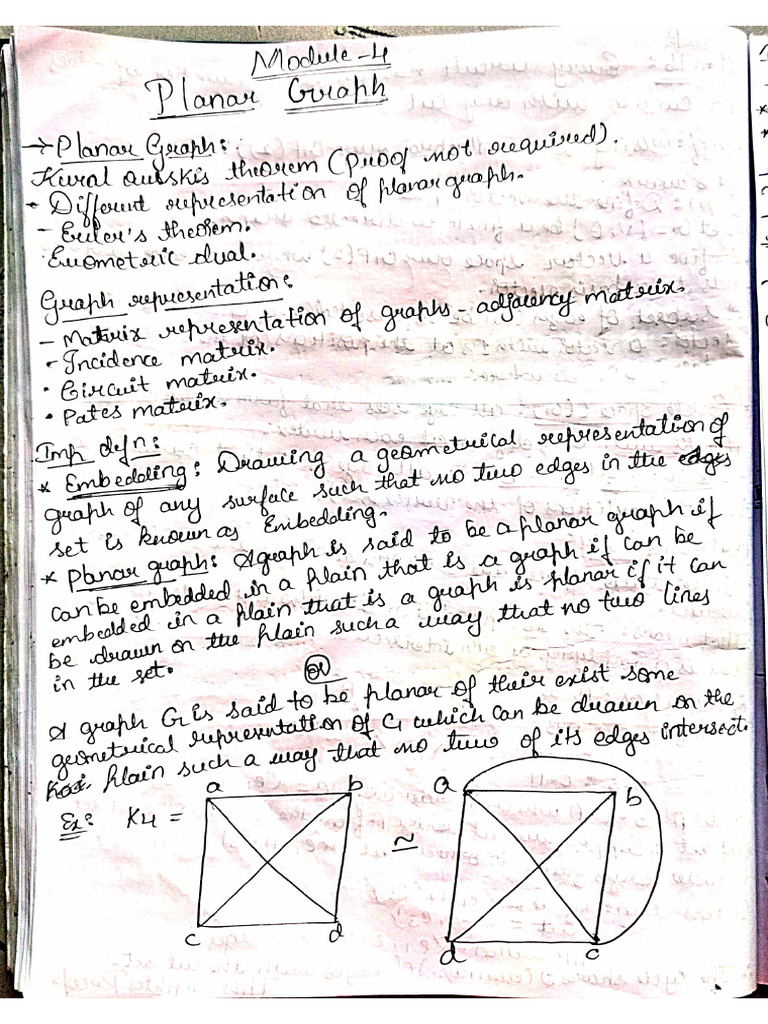 Module-4
Planar Graph
→ Planar Graph:
Kural ouskis theorem (Proof not required).
- Different representation of planar graph.
- Euler's theorem.
Euometric dual.
Graph representation:
- Matrix representation of graphs - adjacency matrix.
- Incidence matrix.
• Circuit matrix.
• Pates matrix.
Imp defn:
* Embedding: Drawing a geometrical representation of
graph of any surface such that no two edges in the
set is known as Embedding.
* Planar graph: A graph is said to be a planar graph if
can be embedded in a plain that is a graph if can be
embedded in a plain that is a graph is planar if it can
be drawn on the plain such a way that no two lines
in the set.
or
A graph G is said to be planar of their exist some
geometrical representation of G which can be drawn on the
plain such a way that no two of its edges intersect.
a b a b
Ex: K4 = ≃
c d d c